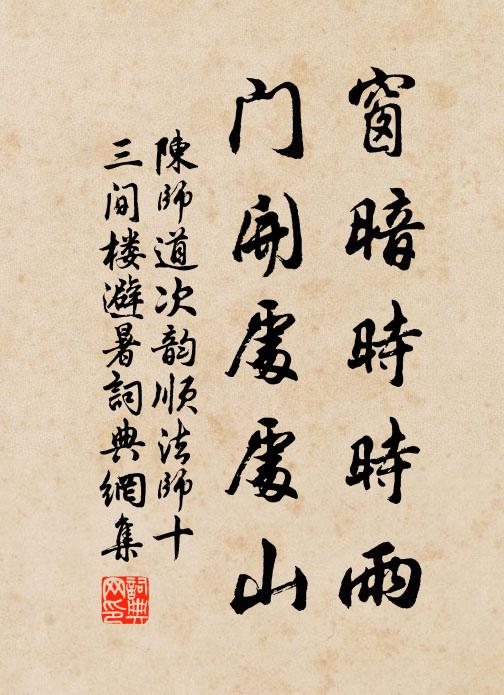 窗暗時時雨
门開處處山
陳師道次韵順法師十
三間楼避暑詞典網集
詞典
网印